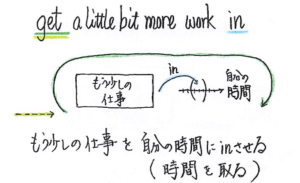 get a little bit more work in
もう少しの
仕事
in
自分の
時間
もう少しの仕事を自分の時間にinさせる
(時間を取る)